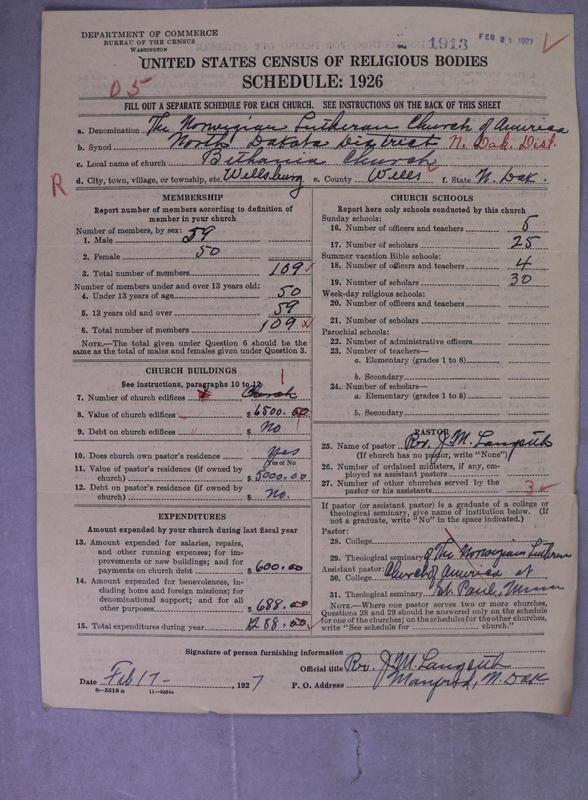 DEPARTMENT OF COMMERCE
BUREAU OF THE CENSUS
WASHINGTON
1913
FEB 21 1927
UNITED STATES CENSUS OF RELIGIOUS BODIES
SCHEDULE: 1926
D5
FILL OUT A SEPARATE SCHEDULE FOR EACH CHURCH. SEE INSTRUCTIONS ON THE BACK OF THIS SHEET
a. Denomination The Norwegian Lutheran Church of America
b. Synod North Dakota District N. Dak. Dist.
c. Local name of church Bethania Church
R
d. City, town, village, or township, etc. Wellsburg e. County Wells f. State N. Dak.
MEMBERSHIP
Report number of members according to definition of
member in your church
Number of members, by sex:
1. Male 59
2. Female 50
3. Total number of members 109
Number of members under and over 13 years old:
4. Under 13 years of age 50
5. 13 years old and over 59
6. Total number of members 109
NOTE.—The total given under Question 6 should be the
same as the total of males and females given under Question 3.
CHURCH BUILDINGS
See instructions, paragraphs 10 to 12
7. Number of church edifices 1 Church
8. Value of church edifices $ 6500.00
9. Debt on church edifices $ No
10. Does church own pastor's residence Yes
(Yes or No)
11. Value of pastor's residence (if owned by
church) $ 5000.00
12. Debt on pastor's residence (if owned by
church) $ No.
EXPENDITURES
Amount expended by your church during last fiscal year
13. Amount expended for salaries, repairs,
and other running expenses; for im-
provements or new buildings; and for
payments on church debt $ 600.00
14. Amount expended for benevolences, in-
cluding home and foreign missions; for
denominational support; and for all
other purposes $ 688.00
15. Total expenditures during year $ 1288.00
CHURCH SCHOOLS
Report here only schools conducted by this church
Sunday schools:
16. Number of officers and teachers 5
17. Number of scholars 25
Summer vacation Bible schools:
18. Number of officers and teachers 4
19. Number of scholars 30
Week-day religious schools:
20. Number of officers and teachers
21. Number of scholars
Parochial schools:
22. Number of administrative officers
23. Number of teachers—
a. Elementary (grades 1 to 8)
b. Secondary
24. Number of scholars—
a. Elementary (grades 1 to 8)
b. Secondary
PASTOR
25. Name of pastor Rev. J.M.
(If church has no pastor, write "None")
26. Number of ordained ministers, if any, em-
ployed as assistant pastors
27. Number of other churches served by the
pastor or his assistants 3
If pastor (or assistant pastor) is a graduate of a college or
theological seminary, give name of institution below. (If
not a graduate, write "No" in the space indicated.)
Pastor:
28. College
29. Theological seminary of The Norwegian Lutheran
Assistant pastor: Church of America at
30. College
31. Theological seminary St. Paul, Minn
NOTE.—Where one pastor serves two or more churches,
Questions 28 and 29 should be answered only on the schedule
for one of the churches; on the schedules for the other churches,
write "See schedule for church."
Signature of person furnishing information
Official title Rev. J.M.
Date Feb 17 - , 1927 P. O. Address Manfred, N. Dak
8—5518a 11—9034